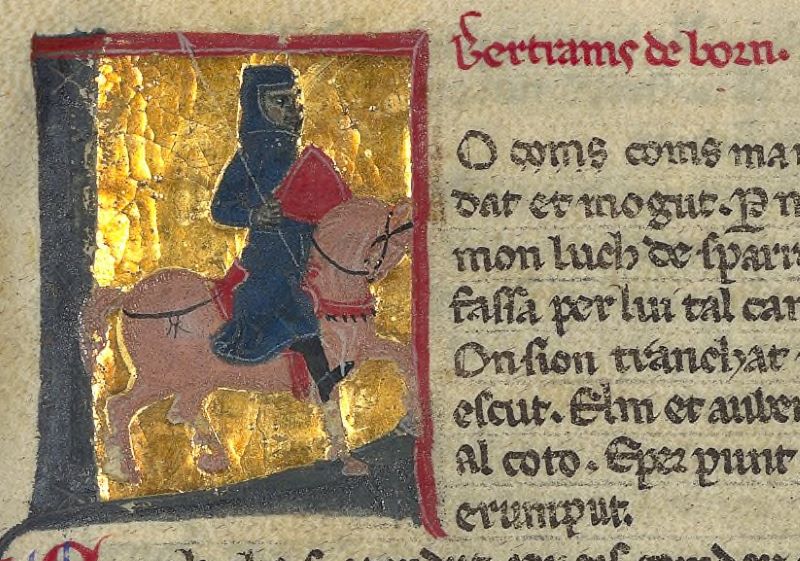 Bertrams de born.
O coms coms man
dat et mogut. P n
mon luch de sparr
fassa per lui tal can
On sion tranchat
escut. Elm et auber
al coto. Eper punt
erumput.